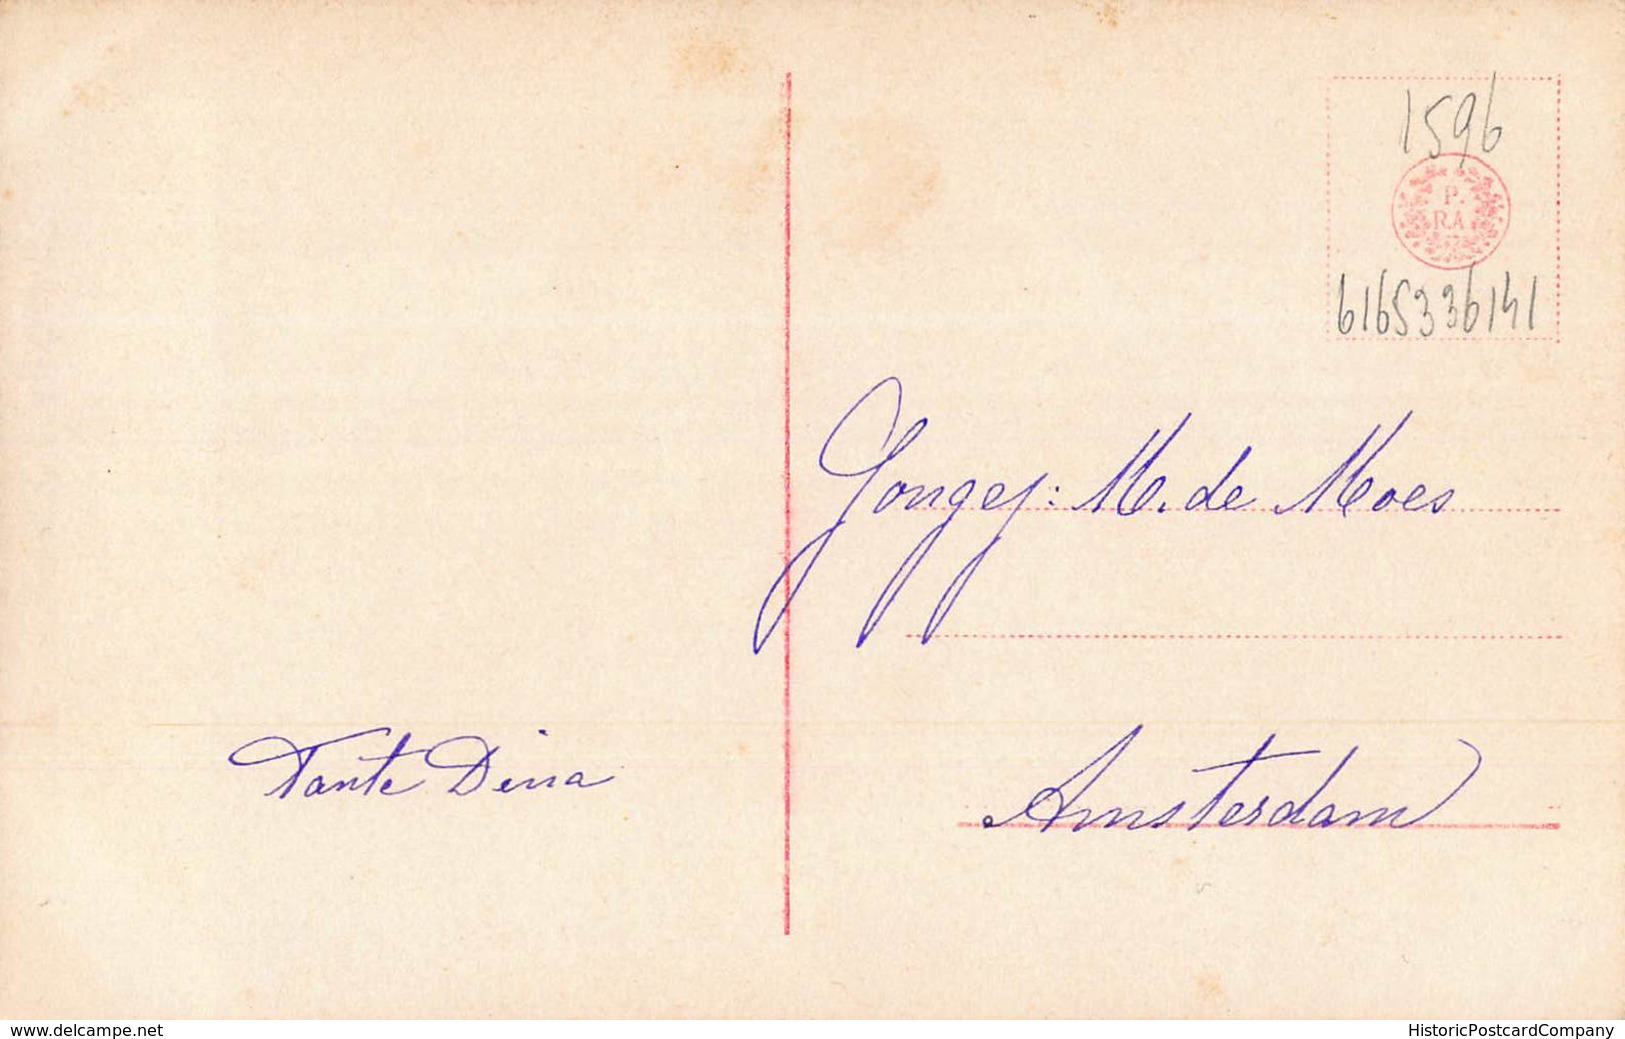 1596
P.
R.A.
6165336141
Jongej: M. de Moes
Tante Dina
Amsterdam
www.delcampe.net
HistoricPostcardCompany